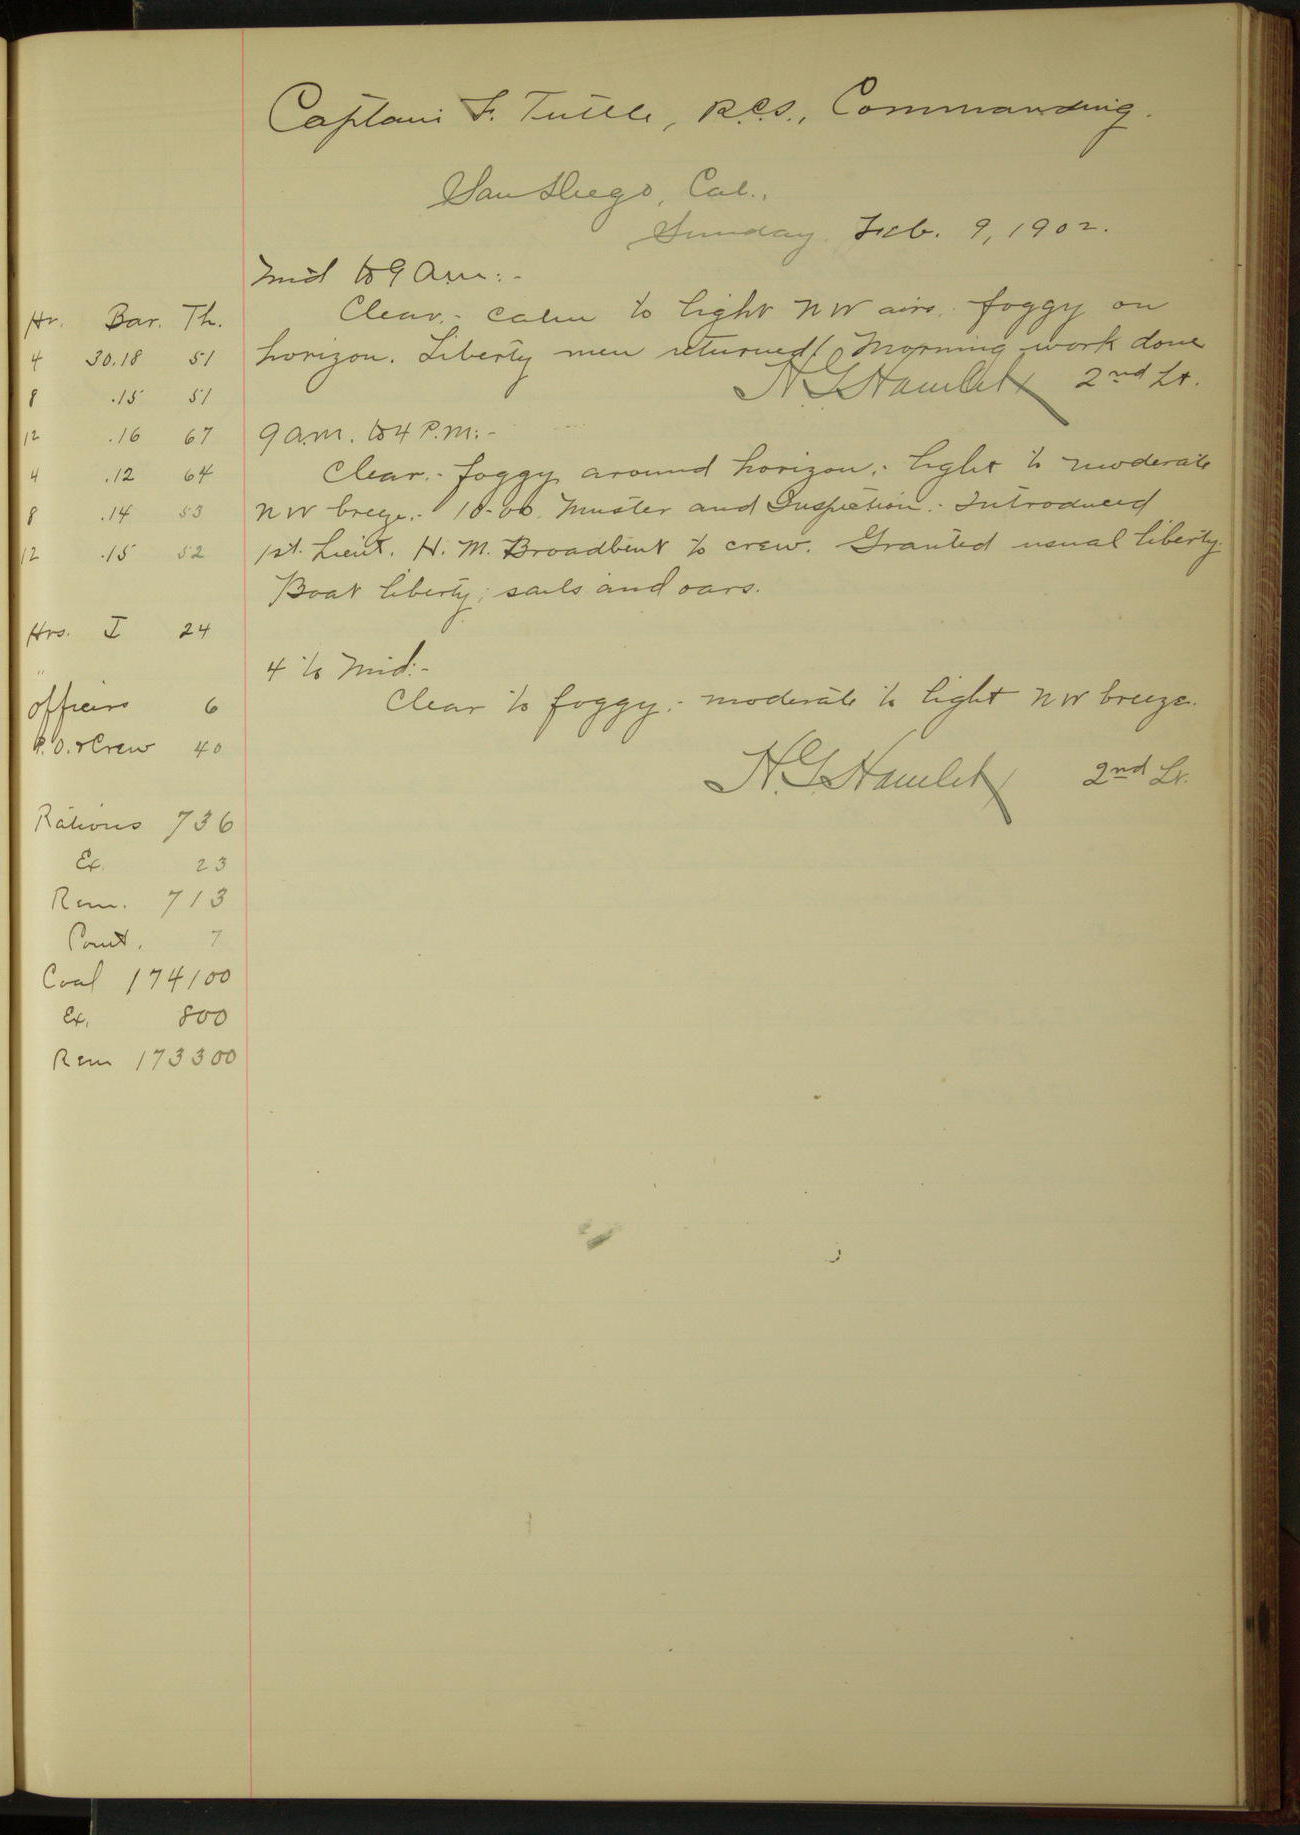 Captain F. Tuttle, R.C.S., Commanding.
San Diego, Cal.,
Sunday Feb. 9, 1902.
Mid to 9 a.m:-
Clear.- calm to light NW airs. foggy on
horizon. Liberty men returned. Morning work done
H.G. Hamlet 2nd Lt.
9 a.m. to 4 P.m:-
Clear.- foggy around horizon.- light to moderate
NW breeze.- 10-00. Muster and Inspection.- Introduced
1st. Lieut. H. M. Broadbent to crew. Granted usual liberty.
Boat liberty; sails and oars.
4 to Mid:-
Clear to foggy.- moderate to light NW breeze.
H.G. Hamlet 2nd Lt.
Hr. Bar. Th.
4 30.18 51
8 .15 51
12 .16 67
4 .12 64
8 .14 53
12 .15 52
Hrs. I 24
Officers 6
P.O. & Crew 40
Rations 736
Ex. 23
Rem. 713
7
Coal 174100
Ex. 800
Rem 173300